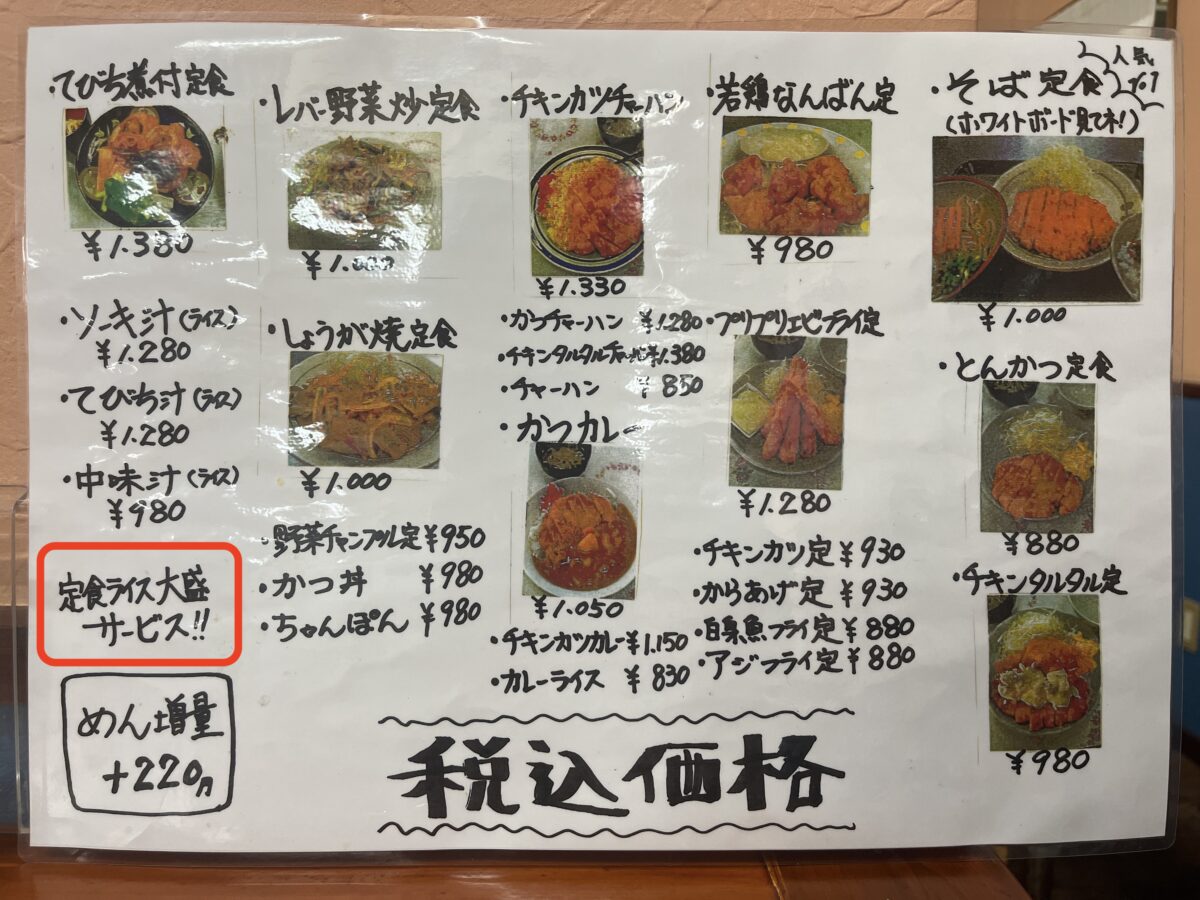 ・てびち煮付定食
¥1.380
・ソーキ汁(ライス)
¥1.280
・てびち汁(ライス)
¥1.280
・中味汁(ライス)
¥980
定食ライス大盛
サービス!!
めん増量
+220円
・レバー野菜炒定食
¥1.000
・しょうが焼定食
¥1.000
・野菜チャンプル定 ¥950
・かつ丼 ¥980
・ちゃんぽん ¥980
・チキンカツチャーハン
¥1.330
・カツチャーハン ¥1.280
・チキンタルタルチャーハン ¥1.380
・チャーハン ¥850
・かつカレー
¥1.050
・チキンカツカレー ¥1.150
・カレーライス ¥830
・若鶏なんばん定
¥980
・プリプリエビフライ定
¥1.280
・チキンカツ定 ¥930
・からあげ定 ¥930
・白身魚フライ定 ¥880
・アジフライ定 ¥880
人気
No.1
・そば定食
(ホワイトボード見てネ!)
¥1.000
・とんかつ定食
¥880
・チキンタルタル定
¥980
税込価格